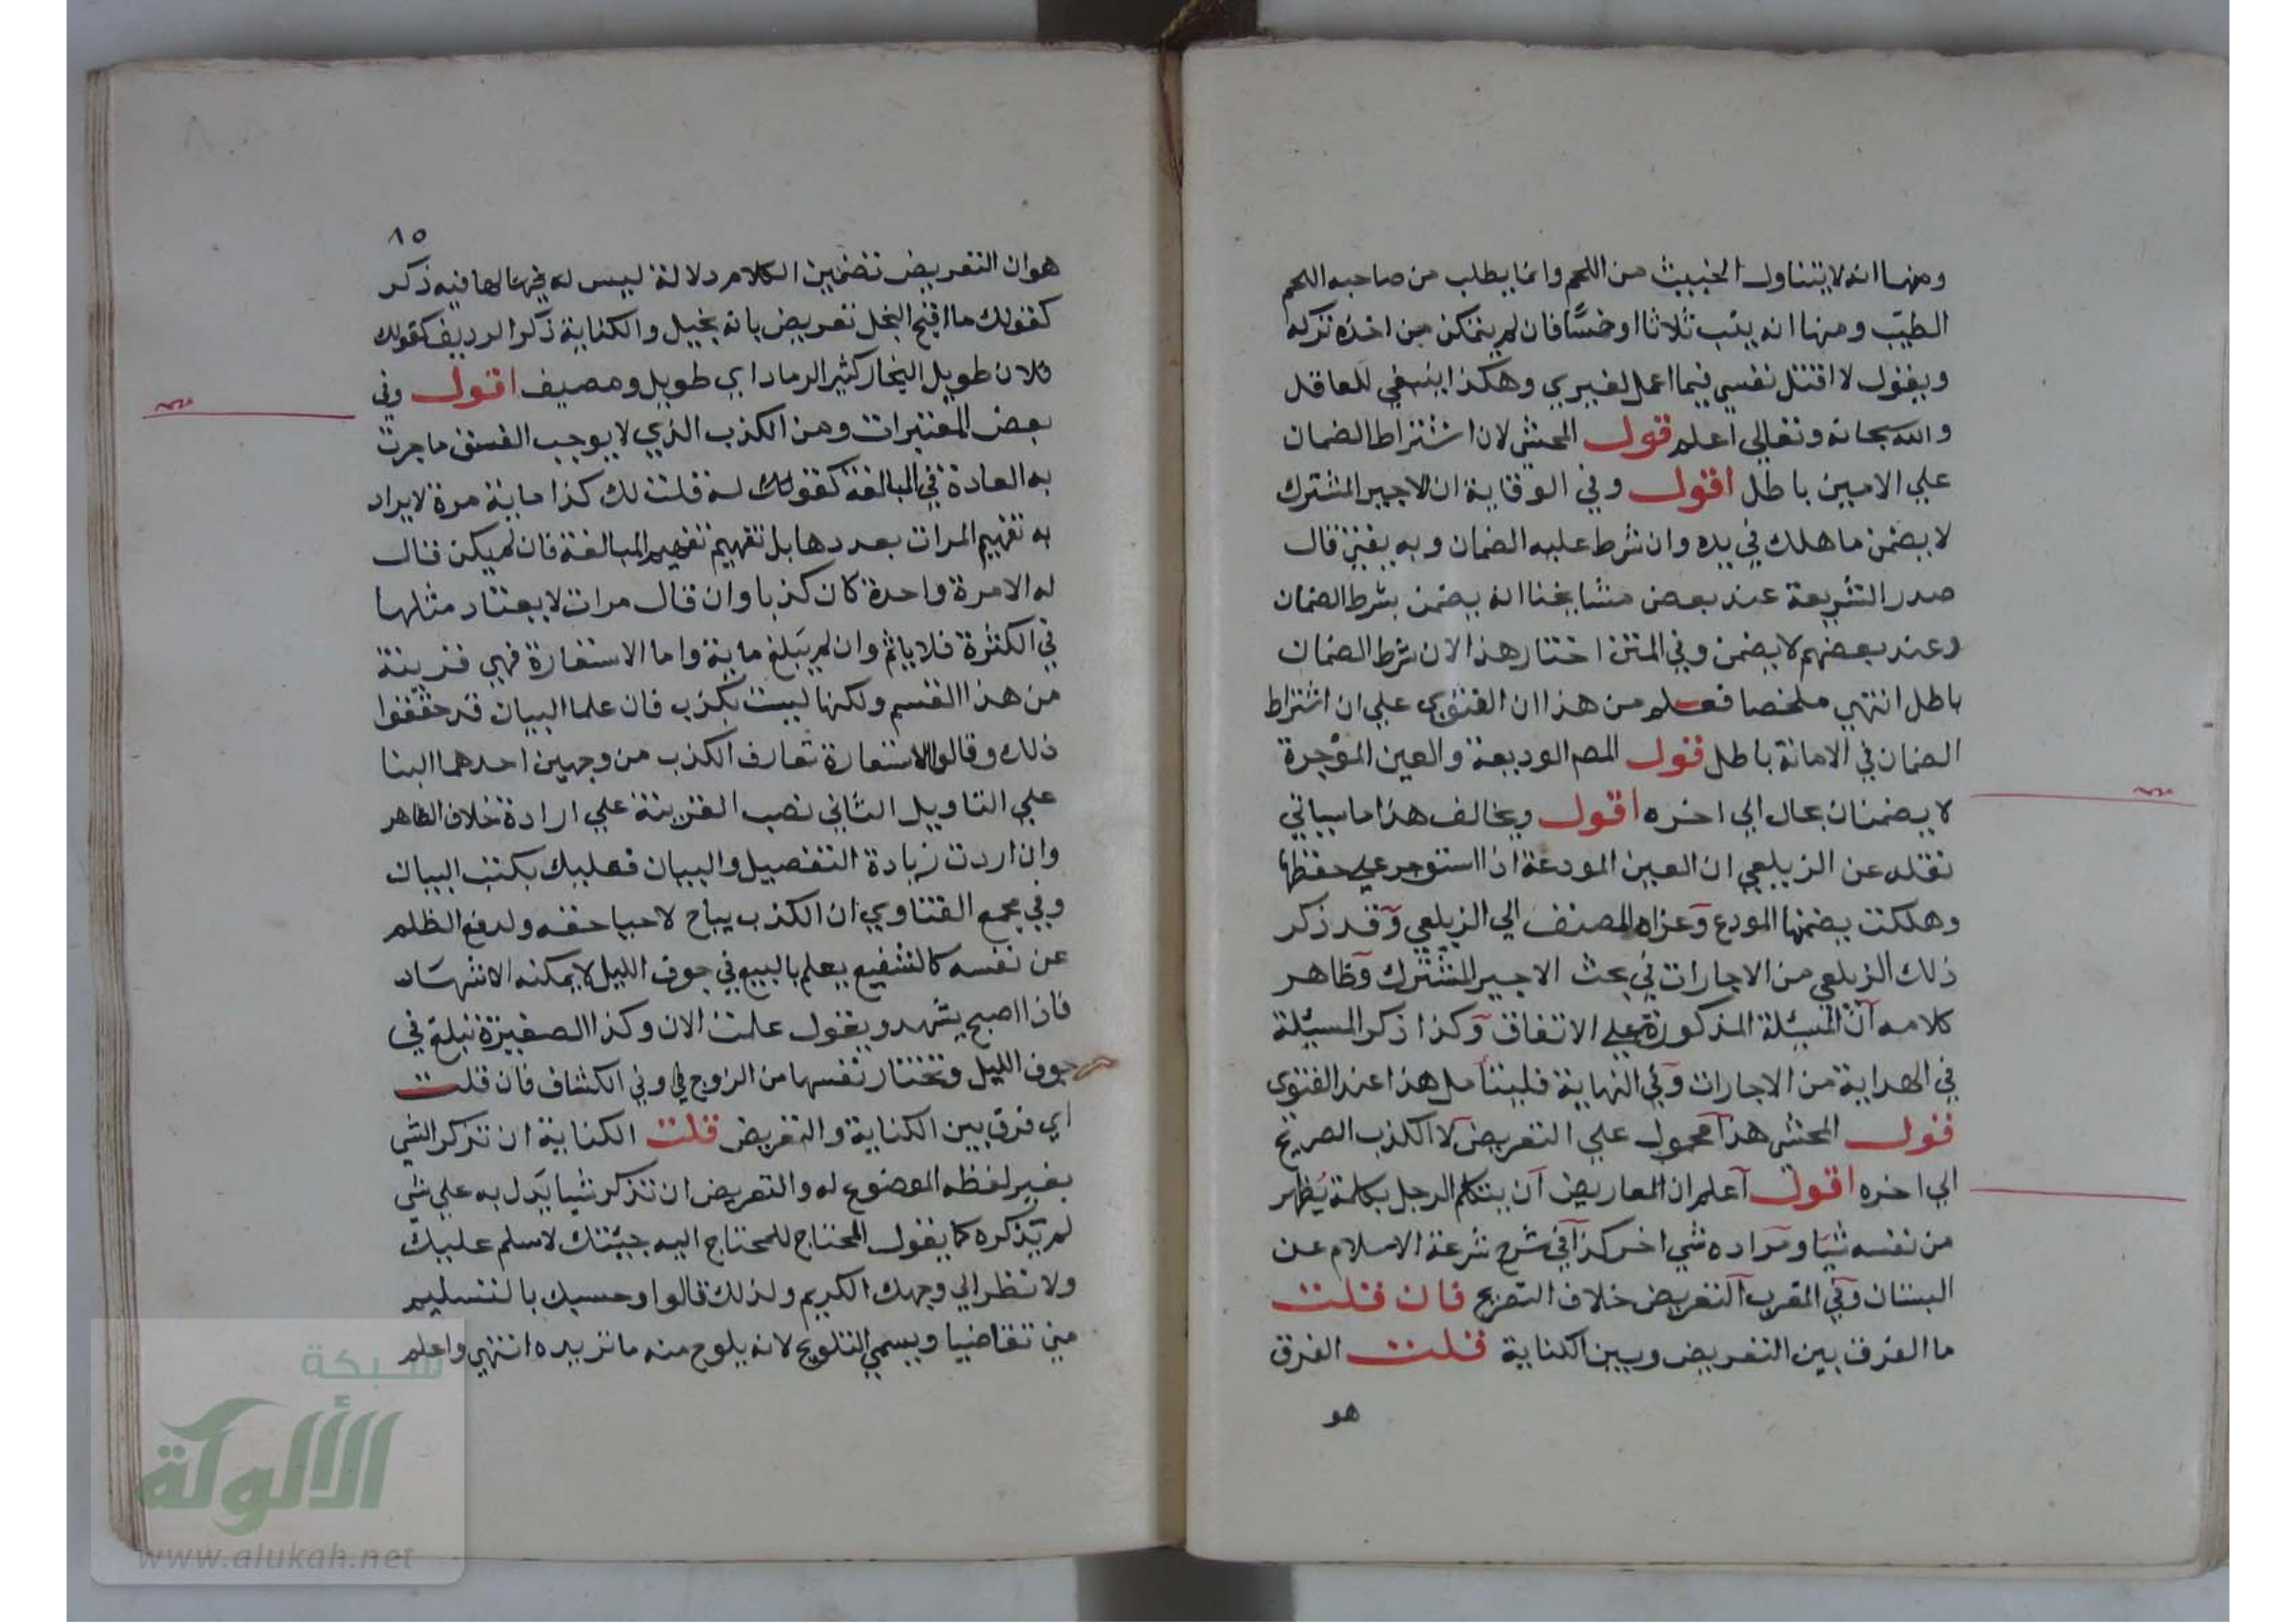 ومنها انه لا يتناول الخبيث من اللحم وانما يطلب من صاحبه اللحم
الطيب ومنها انه يثب ثلاثا او خمسًا فان لم يتمكن من اخذه تركه
ويقول لا اقتل نفسي فيما اعمل لغيري وهكذا ينبغي للعاقل
والله سبحانه وتعالي اعلم قول المحشي لان اشتراط الضمان
علي الامين باطل اقول وفي الوقاية ان الاجير المشترك
لا يضمن ما هلك في يده وان شرط عليه الضمان وبه يفتي قال
صدر الشريعة عند بعض مشايخنا انه يضمن بشرط الضمان
وعند بعضهم لا يضمن وفي المتن اختار هذا لان شرط الضمان
باطل انتهي ملخصا فعلم من هذا ان الفتوي علي ان اشتراط
الضمان في الامانة باطل قول المص الوديعة والعين المؤجرة
لا يضمنان بحال الي اخره اقول ويخالف هذا ما سياتي
نقله عن الزيلعي ان العين المودعة اذا استوجر علي حفظها
وهلكت يضمنها المودع وعزاه المصنف الي الزيلعي وقد ذكر
ذلك الزيلعي من الاجارات في بحث الاجير المشترك وظاهر
كلامه ان المسئلة المذكورة علي الاتفاق وكذا ذكر المسئلة
في الهداية من الاجارات وفي النهاية فليتأمل هذا عند الفتوي
قول المحشي هذا محمول علي التعريض لا الكذب الصريح
الي اخره اقول اعلم ان المعاريض ان يتكلم الرجل بكلمة يُظهر
من نفسه شيا ومراده شي اخر كذا في شرح شرعة الاسلام عن
البستان وفي المقرب التعريض خلاف التصريح فان قلت
ما الفرق بين التعريض وبين الكناية قلت الفرق
هو
٨٥
هو ان التعريض تضمين الكلام دلالة ليس له فيها لها فيه ذكر
كقولك ما اقبح البخل تعريض بانه بخيل والكناية ذكر الرديف كقولك
فلان طويل النجار كثير الرماد اي طويل ومضيف اقول وفي
بعض المعتبرات ومن الكذب الذي لا يوجب الفسق ما جرت
به العادة في المبالغة كقولك له قلت لك كذا ماية مرة لا يراد
به تفهيم المرات بعددها بل تفهيم تفهيم المبالغة فان لم يكن قال
له الا مرة واحدة كان كذبا وان قال مرات لا يعتاد مثلها
في الكثرة فلا ياثم وان لم يبلغ ماية واما الاستعارة فهي قريبة
من هذا القسم ولكنها ليست بكذب فان علما البيان قد حققوا
ذلك وقالوا الاستعارة تفارق الكذب من وجهين احدهما البنا
علي التاويل الثاني نصب القرينة علي ارادة خلاف الظاهر
وان اردت زيادة التفصيل والبيان فعليك بكتب البيان
وفي مجمع الفتاوي ان الكذب يباح لاحيا حقه ولدفع الظلم
عن نفسه كالشفيع يعلم بالبيع في جوف الليل لا يمكنه الاشهاد
فاذا اصبح يشهد ويقول علمت الان وكذا الصغيرة تبلغ في
جوف الليل وتختار نفسها من الزوج وفي الكشاف فان قلت
اي فرق بين الكناية والتعريض قلت الكناية ان تذكر الشي
بغير لفظه الموضوع له والتعريض ان تذكر شيا يَدل به علي شي
لم تذكره كما يقول المحتاج للمحتاج اليه جيتك لاسلم عليك
ولانظر الي وجهك الكريم ولذلك قالوا وحسبك بالتسليم
مني تقاضيا ويسمي التلويح لانه يلوح منه ما تريده انتهي واعلم
شبكة
الألوكة
www.alukah.net